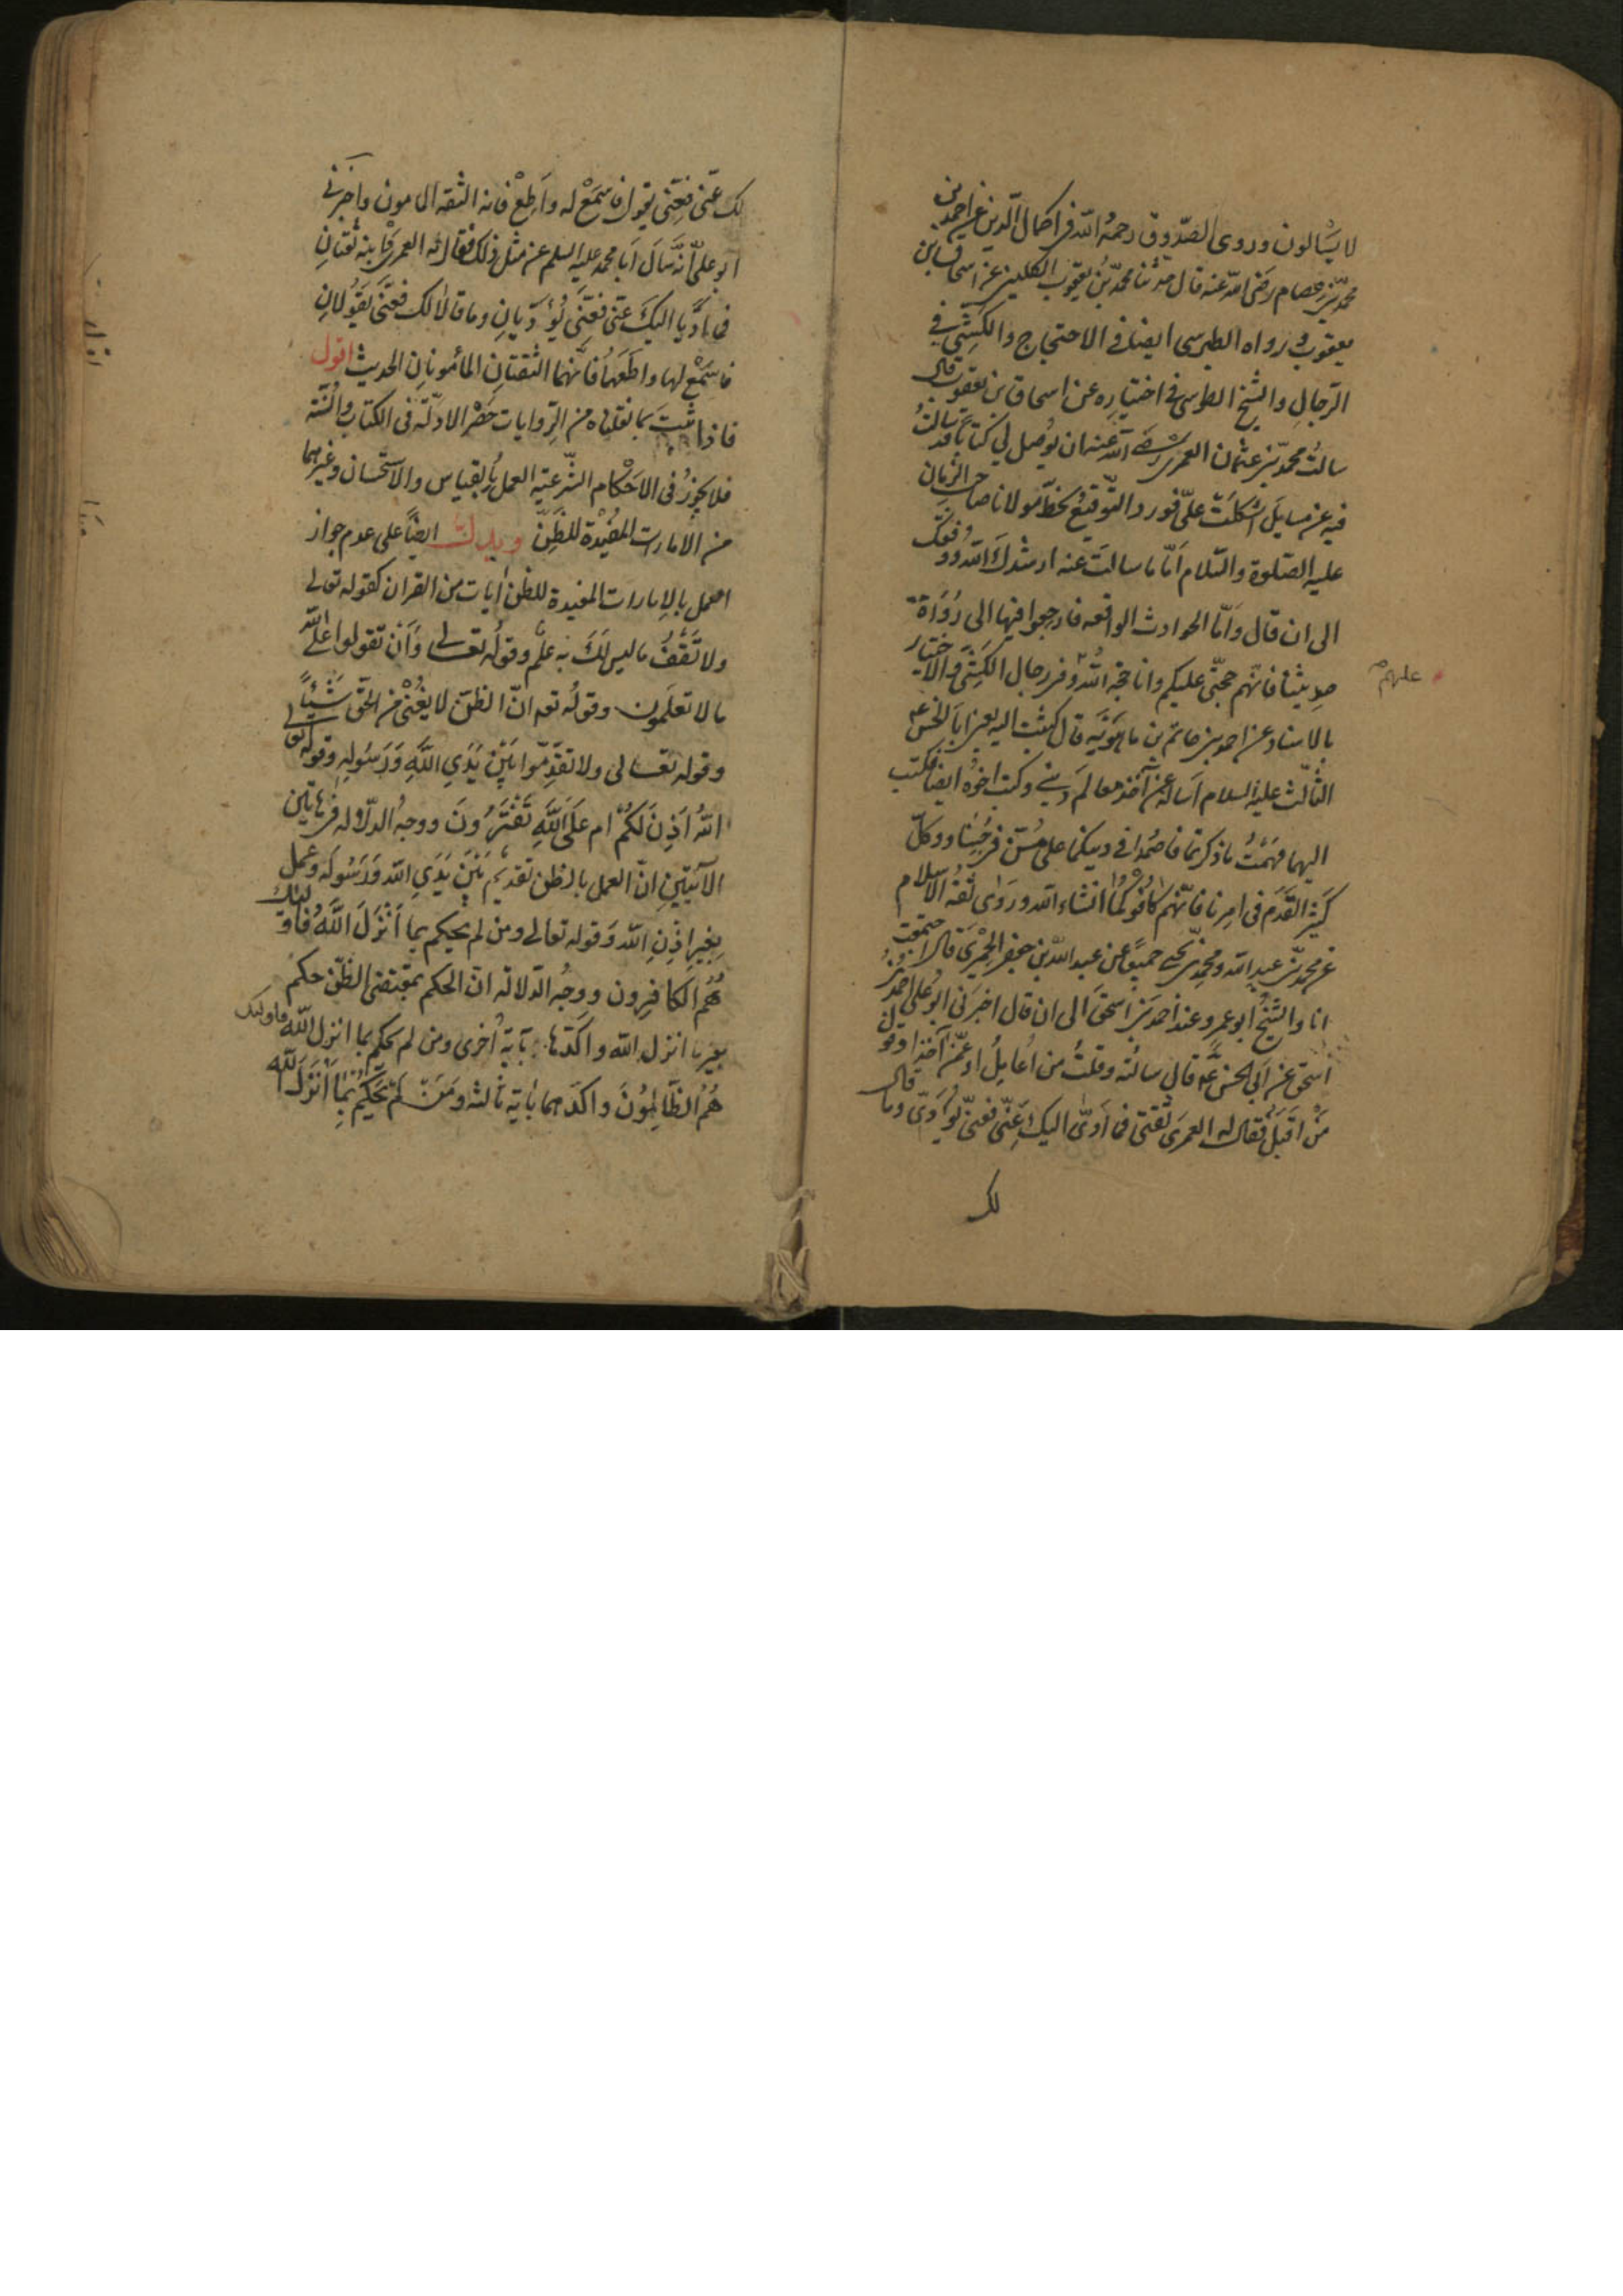 لا يسٔالون وروى الصدّوق رحمه الله في اكمال الدين عن احمد بن
محمد بن عصام رضى الله عنه قال حدثنا محمد بن يعقوب الكليني عن اسحاق بن
يعقوب ورواه الطبرسى ايضا في الاحتجاج والكشّى في
الرّجال والشيخ الطوسى في اختياره عن اسحاق بن يعقوب قال
سالتُ محمد بن عثمان العمرى رضى الله عنه ان يُوصل لى كتاباً قد سالتُ
فيه عن مسايل اشكلت علىّ فورد التّوقيع بخط مولانا صاحب الزمان
عليه الصّلوة والسّلام امّا ما سالت عنه ارشدك الله ووفقك
الى ان قال وامّا الحوادث الواقعه فارجعوا فيها الى رُوَاة
حديثنا فانّهم حجّتى عليكم وانا حجة الله وفى رجال الكشّى والاختيار
عليهم
بالاسناد عن احمد بن حاتم بن ماهوَيَه قال كتبت اليه يعنى ابا الحسن
الثالث عليه السلام اساله عمّن آخذ معالم دينى وكتب اخوه ايضا فكتب
اليهما فهمتُ ما ذكرتما فاصمُدا في دينكما على مُسنّ في حُبّنا وكلّ
كثير القدَم فى امرنا فانّهم كافوكما انشاء الله وروى ثقة الاسلام
عن محمد بن عبد الله ومحمد بن يحيى جميعًا عن عبد الله بن جعفر الحميرى قال اجتمعت
انا والشيخُ ابو عمرو عند احمد بن اسحق الى ان قال اخبرنى ابو على احمد بن
اسحق عن ابى الحسن ع قال سالته وقلتُ من اُعامِلُ او عمّن آخذ او قول
مَن اقبَل فقال له العمرى ثقتى فما ادّى اليك عَنّى فعنّى يؤدّى وما قال
لك
لك عنّى فعنّى يقول فاسمَعْ له واَطِعْ فانه الثقه المامون واخبرنى
ابو علىّ انّه سَأل اَبا محمد عليه السلم عن مثل ذلك فقال له العمرى وابنه ثقتانِ
فما ادّيا اليكَ عنّى فعنّى يُؤدّيانِ وما قالا لك فعنّى يَقُولانِ
فاسمَع لهما واَطعهما فانّهما الثقتانِ المأمونانِ الحديث اقول
فاذا ثبتَ بما نقلناه من الرّوايات حَصْر الادلّة فى الكتاب والسُّنّة
فلا يجوزُ فى الاحْكام الشّرعيّه العمل بالقياس والاستحسان وغيرهما
من الامارات المفيْدة للظنّ ويدلّ ايضًا على عدم جواز
العمل بالامارات المفيدة للظنّ ايات من القران كقوله تعالى
ولا تَقْفُ ما ليس لَكَ به علمٌ وقوله تعالى وَاَنْ تقولوا على الله
ما لا تعلَمون وقولُه تعه انّ الظنّ لا يُغْنى من الحق شَيْئًا
وقوله تعالى ولا تقدّموا بَيْنَ يَدَيِ اللهِ وَرَسُولِه وقوله تعالى
اللهُ اَذِنَ لَكُمْ ام عَلَى اللهِ تَفْتَرُونَ ووجهُ الدّلاله فى هاتين
الآيَتينِ انّ العمل بالظن تقديم بَيْنَ يَدَىِ الله وَرَسُوله وعمل
بِغير اِذْنِ الله وَقوله تعالى ومن لم يحكم بما اَنْزَلَ اللهُ فاولئك
هُمُ الكافِرون ووجهُ الدّلالة انّ الحكم بمقتضى الظنّ حكم
بغير ما انزل الله واكّدها بآيَة اُخرى ومن لم يحكم بما انزل الله فاولئك
هُمُ الظّالِمُونَ واكّدهما بآية ثالثه ومَنْ لمْ يَحْكُمْ بِمَا اَنْزَلَ الله